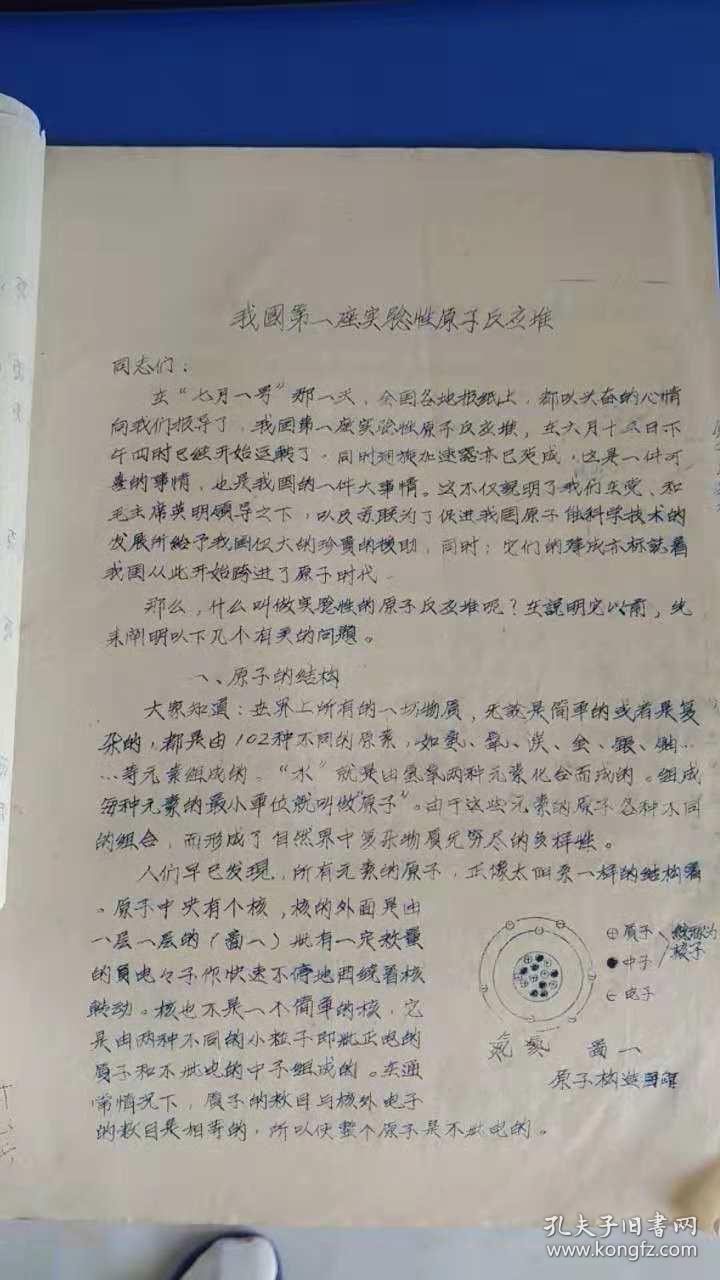 我國第一座实驗性原子反应堆
同志们：
在“七月一号”那一天，全国各地报纸上，都以兴奋的心情
向我们报导了，我国第一座实验性原子反应堆，在六月十三日下
午四时已经开始运转了，同时迴旋加速器亦已完成，这是一件可
喜的事情，也是我国的一件大事情。这不仅說明了我们在党、和
毛主席英明领导之下，以及苏联为了促进我国原子能科学技术的
发展所给予我国仅大的珍貴的援助，同时；它们的建成亦标誌着
我国从此开始跨进了原子时代.
那么，什么叫做实验性的原子反应堆呢？在説明它以前，先
来阐明以下几个有关的问題。
一、原子的结构
大家知道：世界上所有的一切物质，无論是简单的或者是复
杂的，都是由102种不同的原素，如氢、氧、炭、金、銀、鈾…
…等元素组成的。“水”就是由氢氧两种元素化合而成的。组成
每种元素的最小单位就叫做“原子”。由于这些元素的原子各种不同
的组合，而形成了自然界中复杂物质无穷尽的多样性。
人们早已发现，所有元素的原子，正像太阳系一样的结构着
。原子中央有个核，核的外面是由
一层一层的（啚一）批有一定数量
的負电々子作快速不停地围绕着核
转动。核也不是一个简单的核，它
是由两种不同的小粒子即批正电的
质子和不批电的中子组成的。在通
常情况下，质子的数目与核外电子
的数目是相等的，所以使整个原子是不批电的。
⊕ 质子
● 中子
核子
⊖ 电子
啚一
原子构造
孔夫子旧书网
www.kongfz.com